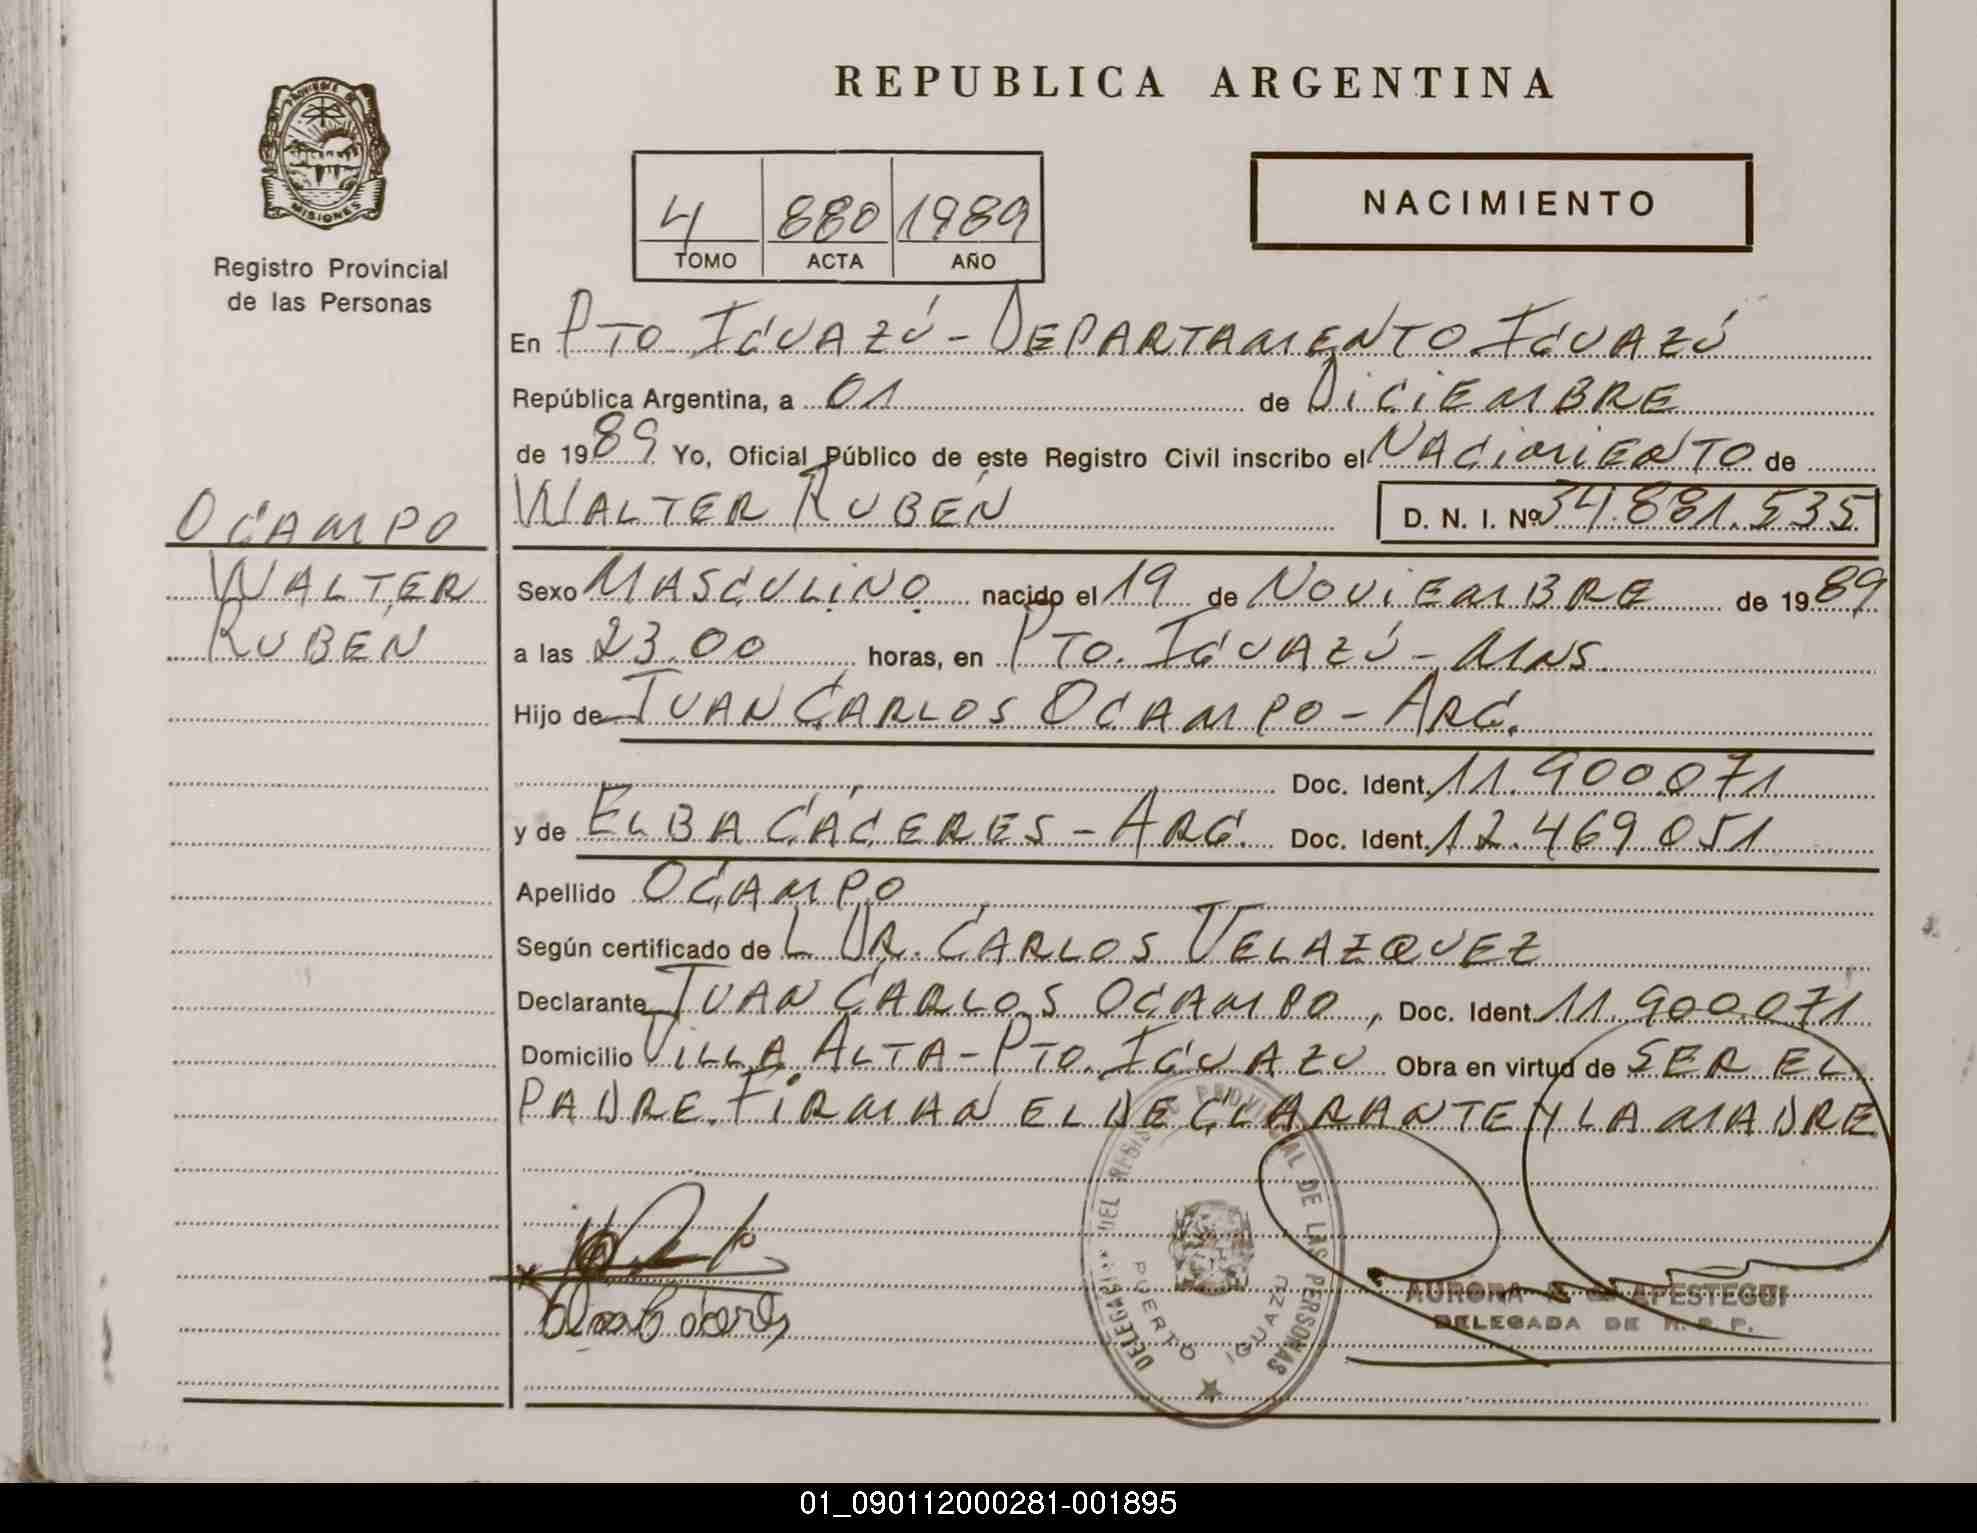 REPUBLICA ARGENTINA
PROVINCIA DE
MISIONES
Registro Provincial
de las Personas
4 880 1989
TOMO ACTA AÑO
NACIMIENTO
En PTO. IGUAZÚ - DEPARTAMENTO IGUAZÚ
República Argentina, a 01 de DICIEMBRE
de 1989 Yo, Oficial Público de este Registro Civil inscribo el NACIMIENTO de
WALTER RUBÉN D. N. I. Nº 34.881.535
OCAMPO
WALTER
RUBÉN
Sexo MASCULINO nacido el 19 de NOVIEMBRE de 1989
a las 23.00 horas, en PTO. IGUAZÚ - MNS.
Hijo de JUAN CARLOS OCAMPO - ARG.
Doc. Ident. 11.900.071
y de ELBA CÁCERES - ARG. Doc. Ident. 12.469.051
Apellido OCAMPO
Según certificado de L DR. CARLOS VELAZQUEZ
Declarante JUAN CARLOS OCAMPO, Doc. Ident. 11.900.071
Domicilio VILLA ALTA - PTO. IGUAZU Obra en virtud de SER EL
PADRE. FIRMAN EL DECLARANTE Y LA MADRE
DEL REGISTRO PROVINCIAL DE LAS PERSONAS
PUERTO IGUAZU
AURORA APESTEGUI
DELEGADA DE R. P. P.
01_090112000281-001895